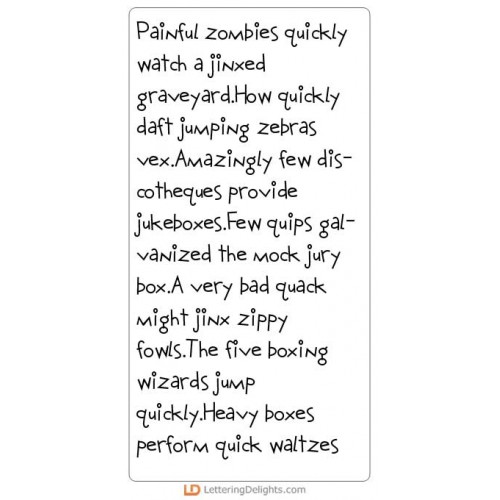 Painful zombies quickly
watch a jinxed
graveyard.How quickly
daft jumping zebras
vex.Amazingly few dis-
cotheques provide
jukeboxes.Few quips gal-
vanized the mock jury
box.A very bad quack
might jinx zippy
fowls.The five boxing
wizards jump
quickly.Heavy boxes
perform quick waltzes
LD LetteringDelights.com